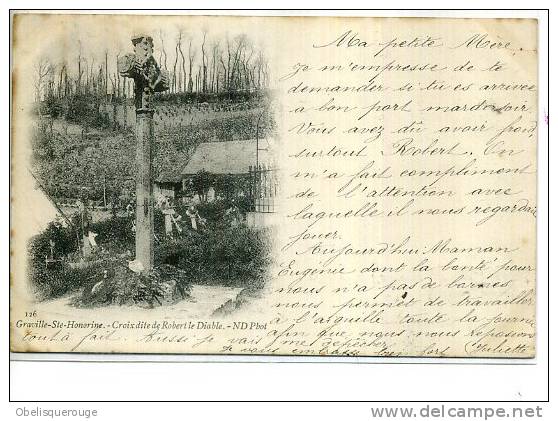 Ma petite Mère,
Je m'empresse de te
demander si tu es arrivée
a bon port mardi soir
Vous avez dû avoir froid
surtout Robert. On
m'a fait compliment
de l'attention avec
laquelle il nous regardait
jouer.
Aujourd'hui Maman
Eugénie dont la bonté pour
nous n'a pas de bornes
nous permet de travailler
à l'aiguille toute la journée
afin que nous nous reposions
tout à fait. Aussi je vais me dépêcher
Je vous embrasse bien fort Juliette
126
Graville-Ste-Honorine. - Croix dite de Robert le Diable. - ND Phot
Obelisquerouge
www.delcampe.net